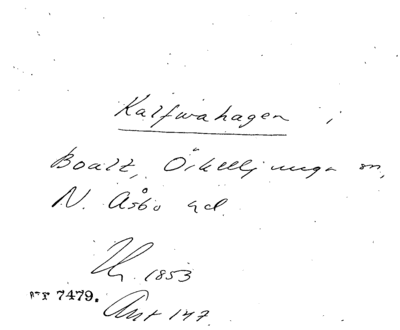 Kalfwahagen i
Boalt, Örkelljunga sn,
N. Åsbo hd.
1853
7479.
Ant 147